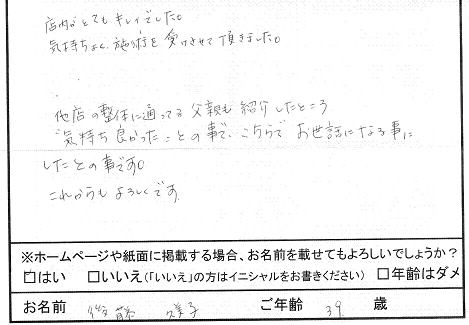 店内がとてもキレイでした。
気持ちよく施術を受けさせて頂きました。
他店の整体に通ってる父親も紹介したところ
気持ち良かったとの事で、こちらでお世話になる事に
したとの事です。
これからもよろしくです。
※ホームページや紙面に掲載する場合、お名前を載せてもよろしいでしょうか?
☐はい ☐いいえ(「いいえ」の方はイニシャルをお書きください) ☐年齢はダメ
お名前 後藤 子 ご年齢 39 歳